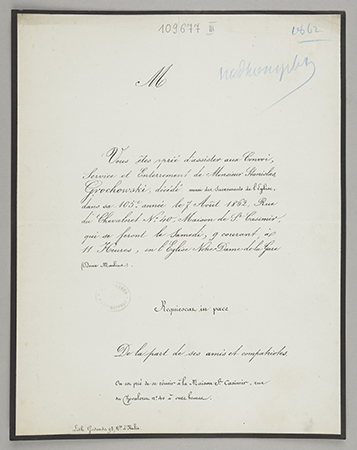 109677 III
1862
M
Vous êtes prié d'assister aux Convoi,
Service et Enterrement de Monsieur Stanislas
Grochowski, décédé muni des Sacrements de l'Eglise,
dans sa 105e année le 7 Août 1862, Rue
du Chevaleret No 40, Maison de St Casimir,
qui se feront le Samedi, 9 courant à
11 Heures, en l'Eglise Notre-Dame de la Gare
Requiescat in pace
De la part de ses amis et compatriotes.
On est prié de se réunir à la Maison St Casimir, rue
du Chevaleret no 40 à onze heures.
Lith.